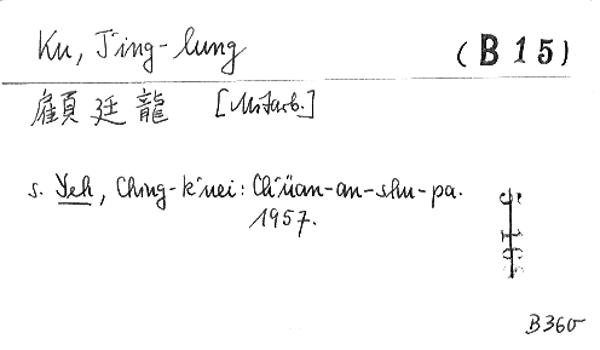 Ku, T'ing-lung (B 15)
顧廷龍 [Mitarb.]
s. Yeh, Ching-k'uei: Ch'üan-an-shu-pa.
1957.
B360